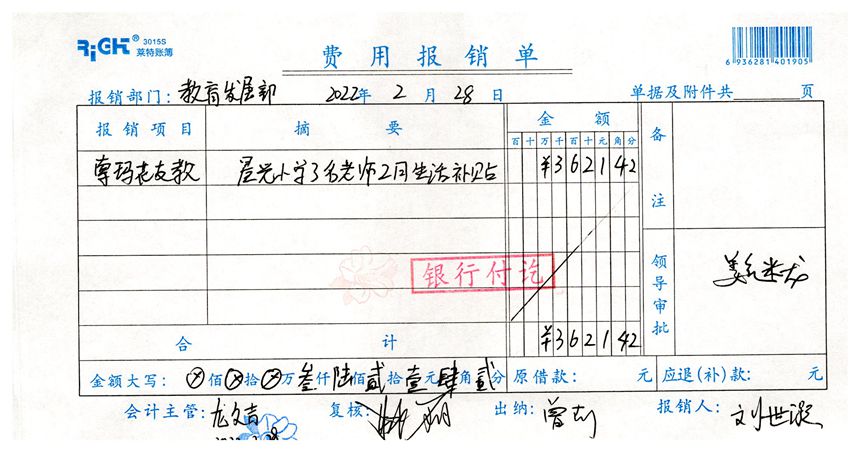 RiGHT® 3015S
莱特账簿
费用报销单
6 936281 401905
报销部门: 教育发展部 2022年 2 月 28 日 单据及附件共 页
报销项目 摘要 金额 备注
百十万千百十元角分
晨光小学3名老师2月生活补贴 ¥362142
银行付讫
领导审批
合计 ¥362142
金额大写: ⊗佰⊗拾⊗万叁仟陆佰贰拾壹元肆角贰分 原借款: 元 应退(补)款: 元
会计主管: 龙文吉 复核: 出纳: 报销人: